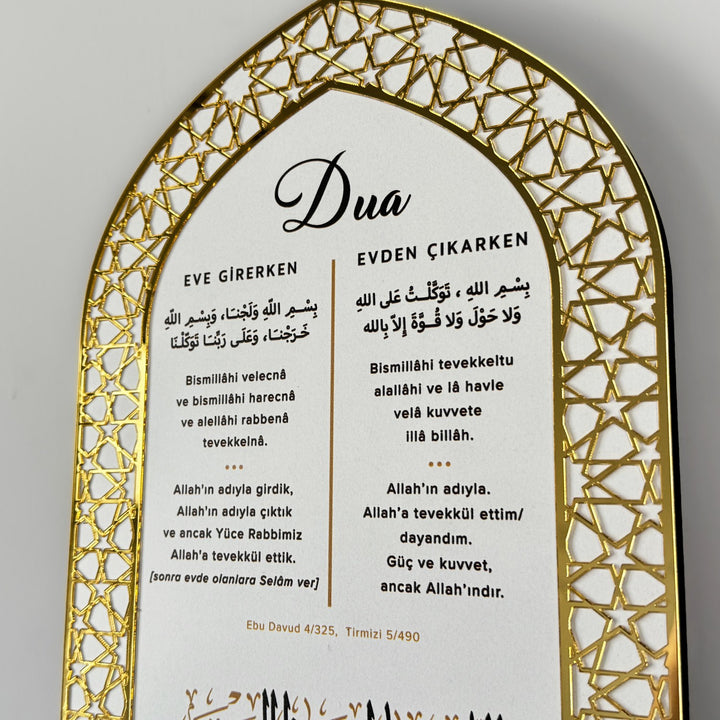 Dua
EVE GİRERKEN
بِسْمِ اللّٰهِ وَلَجْنَا، وَبِسْمِ اللّٰهِ
خَرَجْنَا، وَعَلَى رَبِّنَا تَوَكَّلْنَا
Bismillâhi velecnâ
ve bismillâhi harecnâ
ve alellâhi rabbenâ
tevekkelnâ.
Allah'ın adıyla girdik,
Allah'ın adıyla çıktık
ve ancak Yüce Rabbimiz
Allah'a tevekkül ettik.
[sonra evde olanlara Selâm ver]
EVDEN ÇIKARKEN
بِسْمِ اللهِ ، تَوَكَّلْتُ عَلى اللهِ
وَلا حَوْلَ وَلا قُوَّةَ إِلاّ بِالله
Bismillâhi tevekkeltu
alallâhi ve lâ havle
velâ kuvvete
illâ billâh.
Allah'ın adıyla.
Allah'a tevekkül ettim/
dayandım.
Güç ve kuvvet,
ancak Allah'ındır.
Ebu Davud 4/325, Tirmizi 5/490